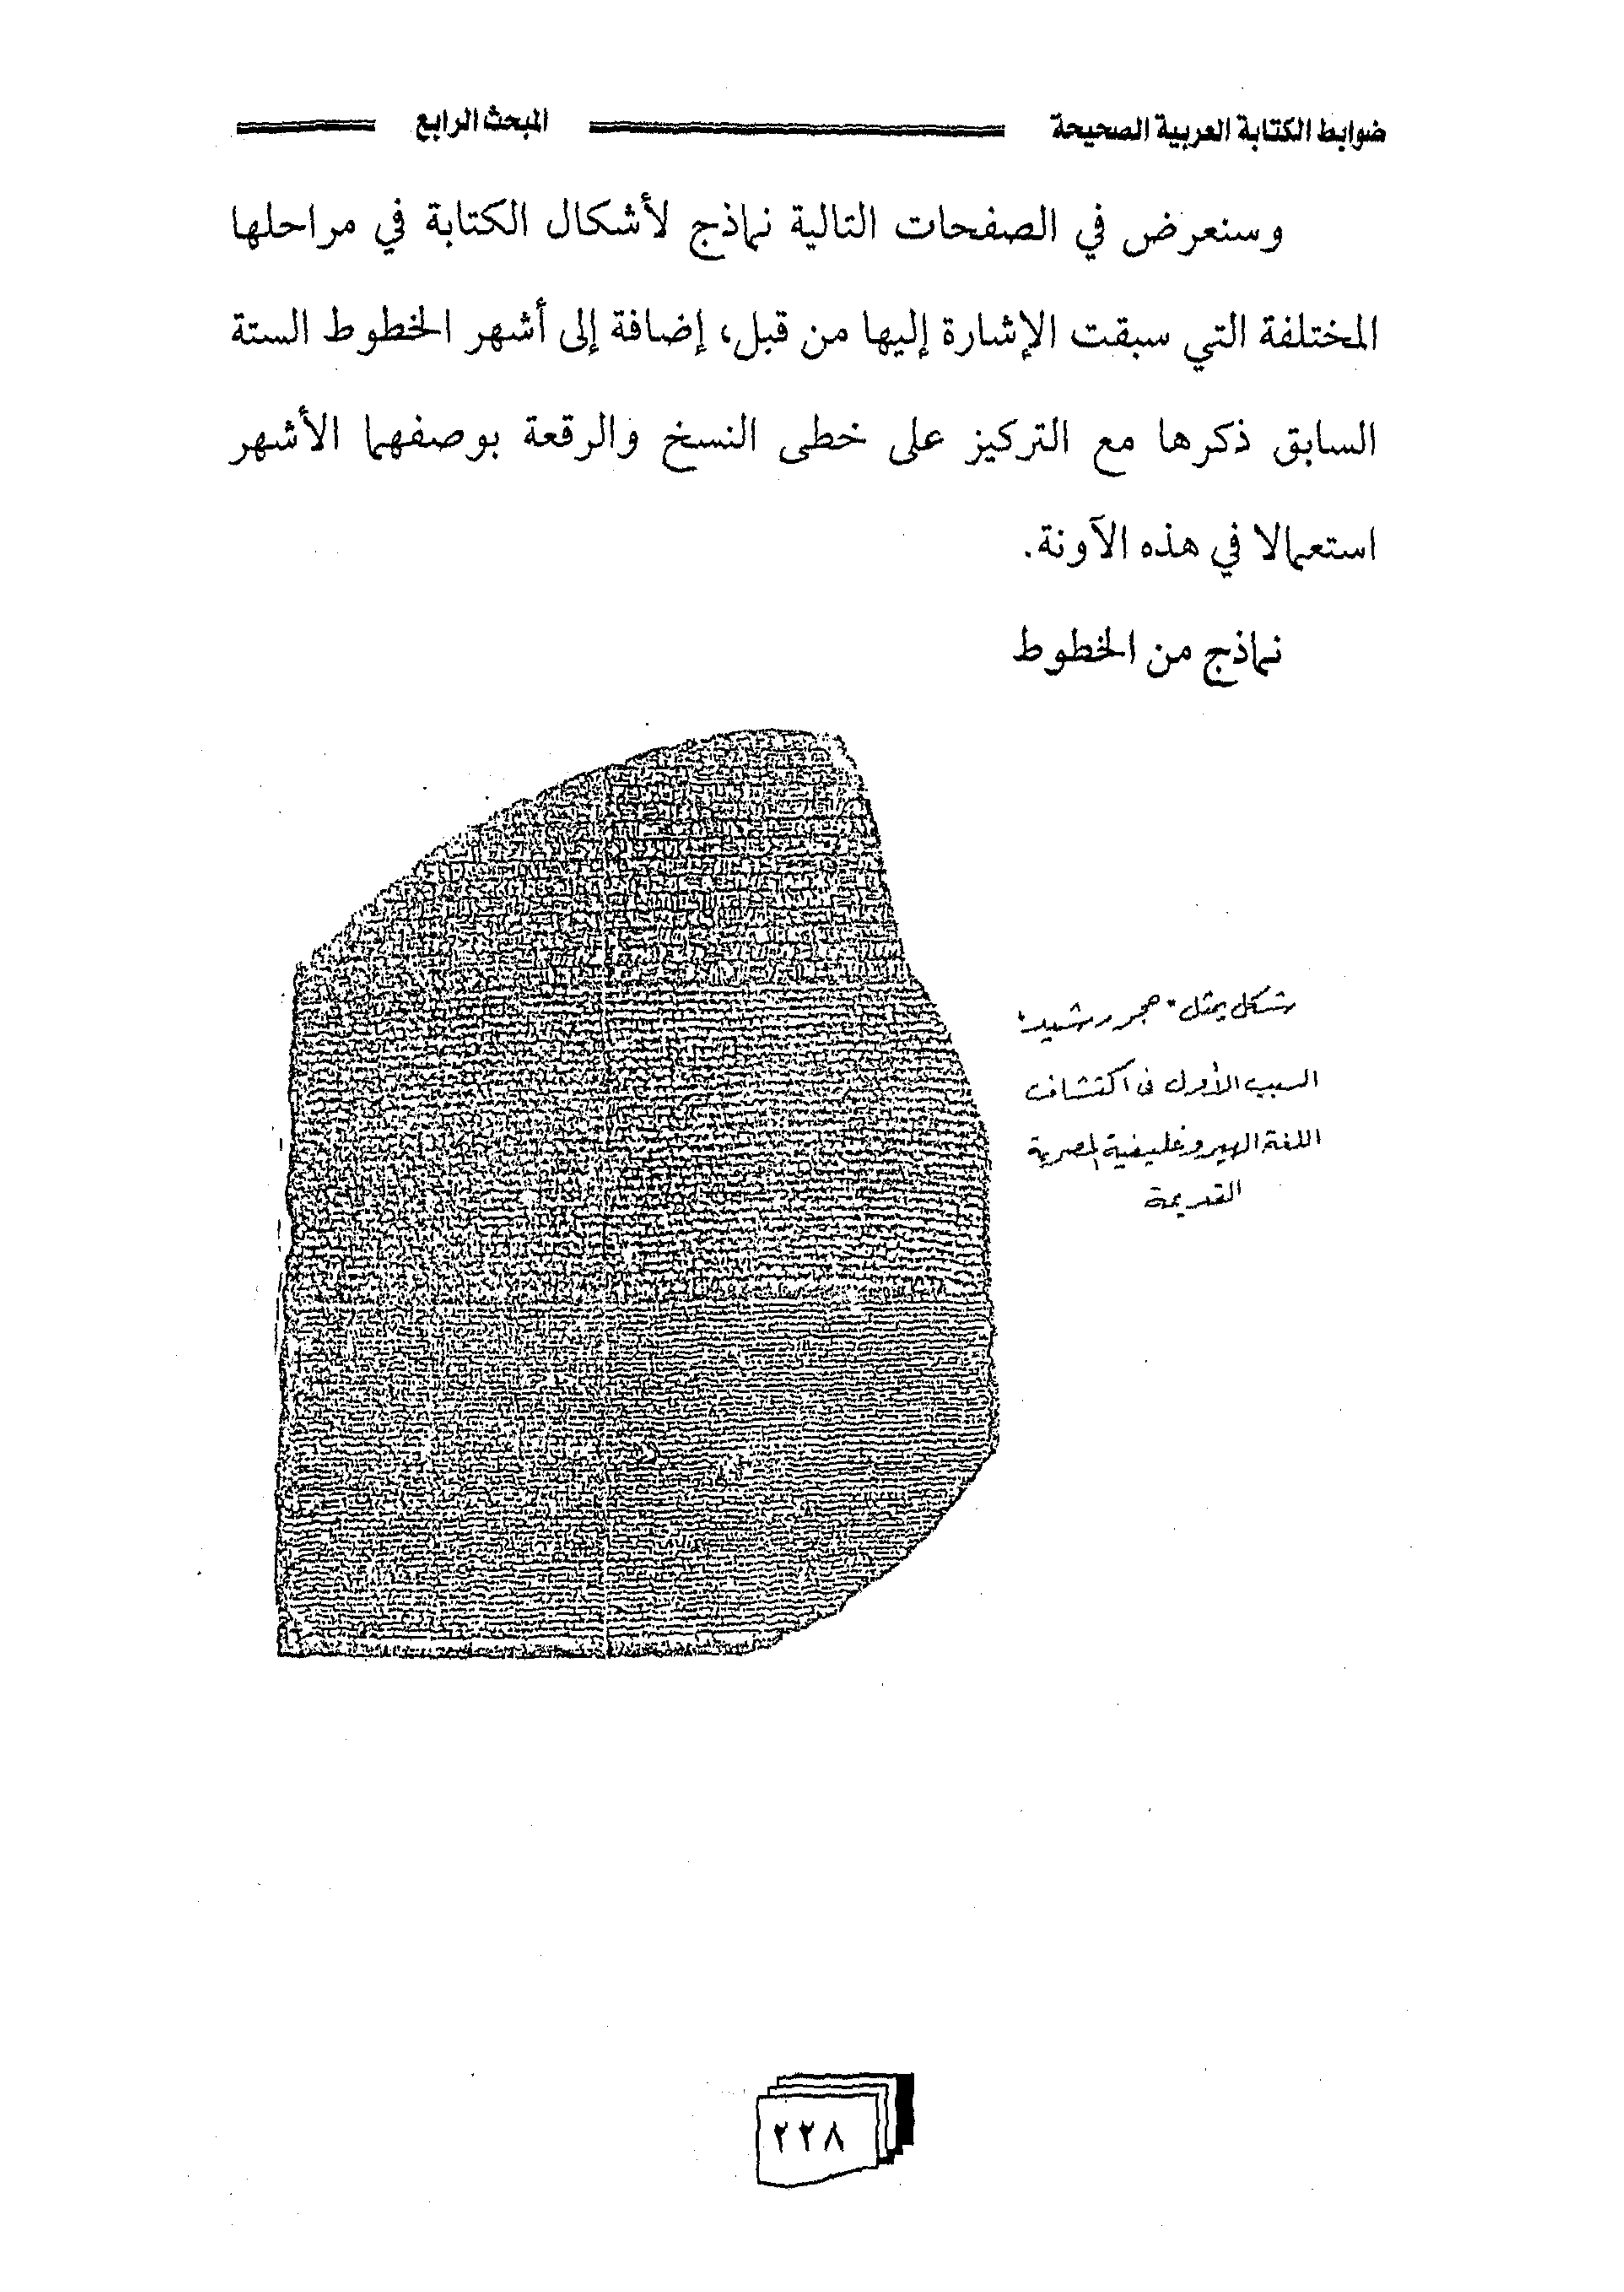 ضوابط الكتابة العربية الصحيحة المبحث الرابع
وسنعرض في الصفحات التالية نماذج لأشكال الكتابة في مراحلها
المختلفة التي سبقت الإشارة إليها من قبل، إضافة إلى أشهر الخطوط الستة
السابق ذكرها مع التركيز على خطى النسخ والرقعة بوصفهما الأشهر
استعمالا في هذه الآونة.
نماذج من الخطوط
شكل يمثل "حجر رشيد"
السبب الأول فى اكتشاف
اللغة الهيروغليفية المصرية
القديمة
٢٢٨